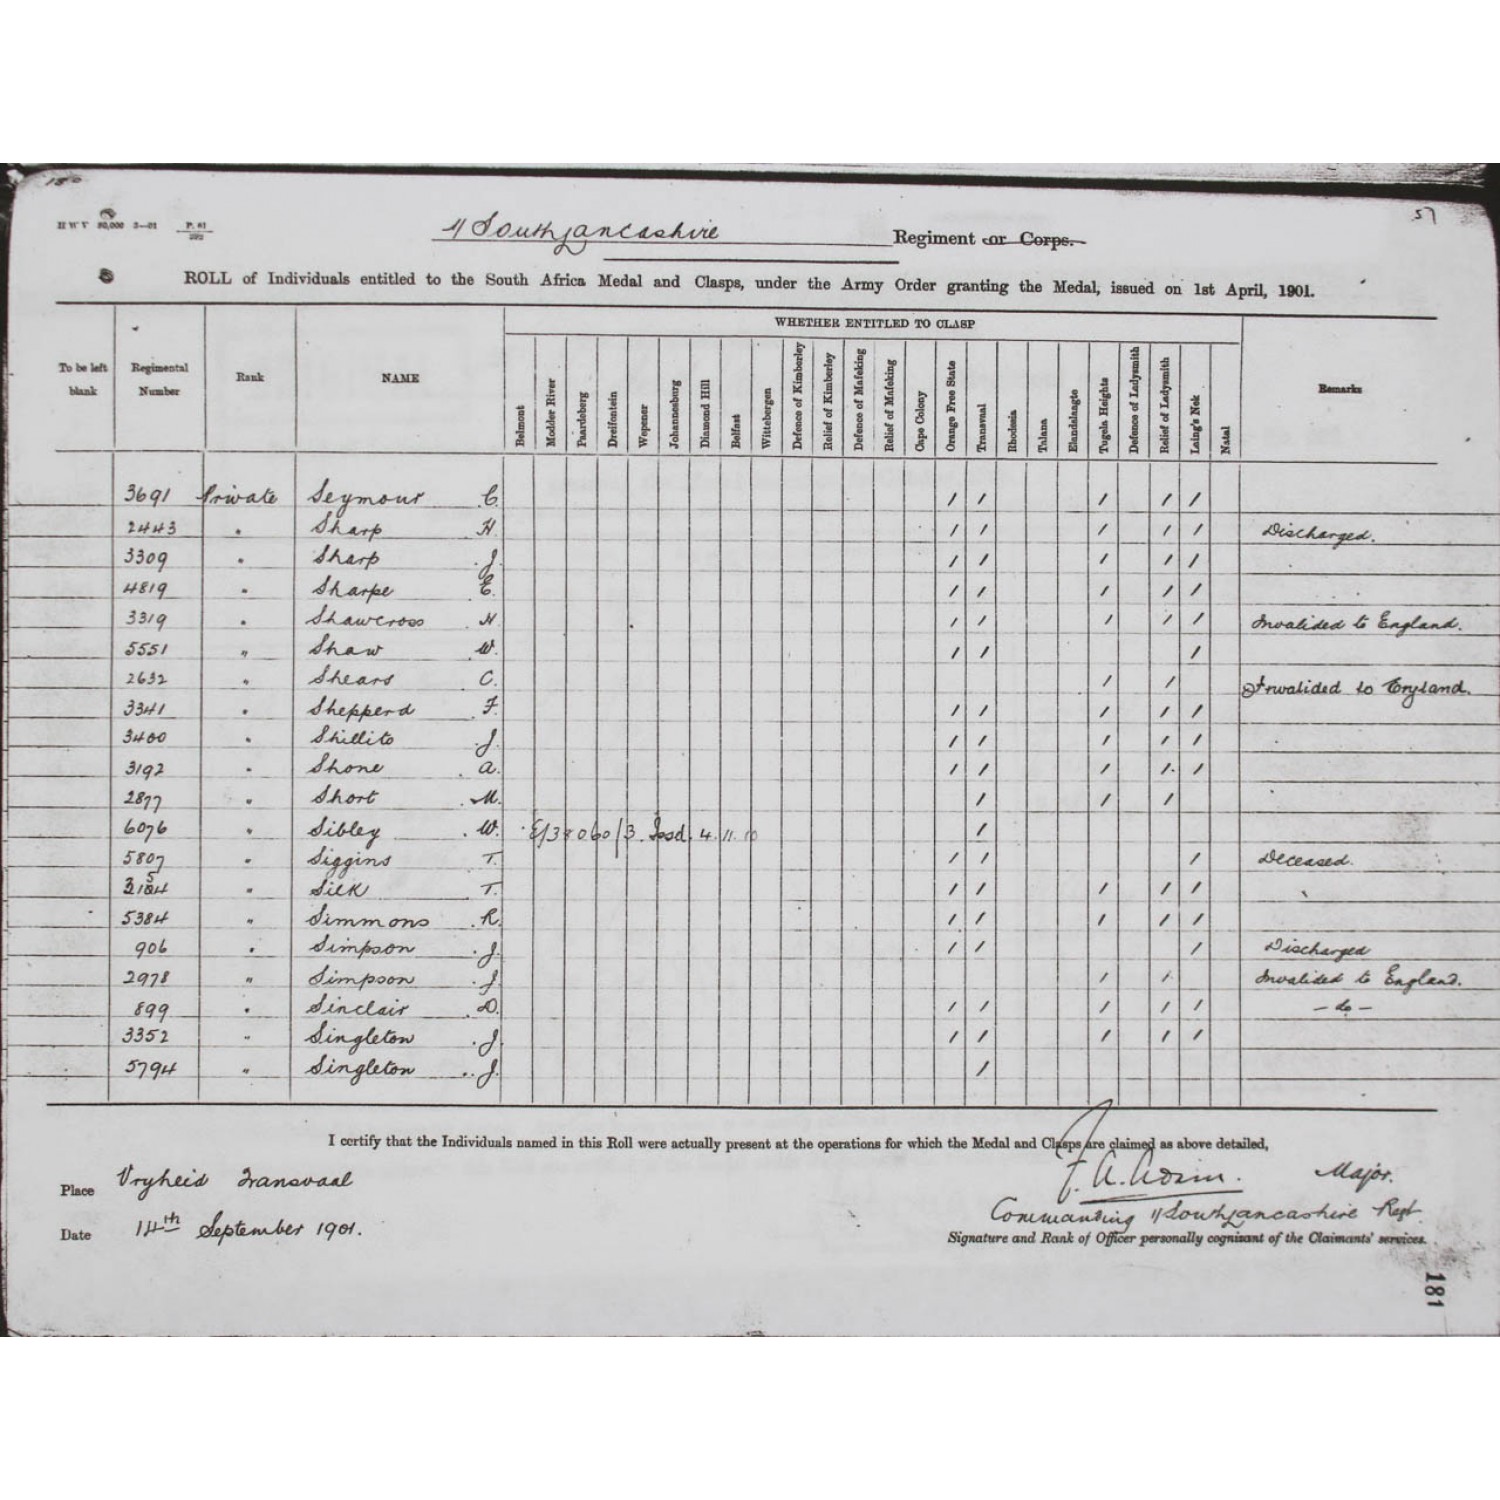 57
H W V 20,000 3—01 P. 61
1/ South Lancashire Regiment or Corps.
ROLL of Individuals entitled to the South Africa Medal and Clasps, under the Army Order granting the Medal, issued on 1st April, 1901.
WHETHER ENTITLED TO CLASP
To be left blank Regimental Number Rank NAME Belmont Modder River Paardeberg Dreifontein Wepener Johannesburg Diamond Hill Belfast Wittebergen Defence of Kimberley Relief of Kimberley Defence of Mafeking Relief of Mafeking Cape Colony Orange Free State Transvaal Rhodesia Talana Elandslaagte Tugela Heights Defence of Ladysmith Relief of Ladysmith Laing's Nek Natal Remarks
3691 Private Seymour C. / / / / /
2443 " Sharp H. / / / / / Discharged.
3309 " Sharp J. / / / / /
4819 " Sharpe E. / / / / /
3319 " Shawcross H. / / / / / Invalided to England.
5551 " Shaw W. / / /
2632 " Shears C. / / Invalided to England.
3341 " Shepperd F. / / / / /
3400 " Shillito J. / / / / /
3192 " Shone A. / / / / /
2877 " Short M. / / /
6076 " Sibley W. /3 Issd. 4.11.10 /
5807 " Siggins T. / / / Deceased.
" Silk T. / / / / /
5384 " Simmons R. / / / / /
906 " Simpson J. / / / Discharged
2978 " Simpson J / / Invalided to England.
899 " Sinclair D. / / / / / — do —
3352 " Singleton J. / / / / /
5794 " Singleton J. /
I certify that the Individuals named in this Roll were actually present at the operations for which the Medal and Clasps are claimed as above detailed,
Place Vryheid Transvaal
Major.
Date 14th September 1901.
Commanding 1/ South Lancashire Regt.
Signature and Rank of Officer personally cognisant of the Claimants' services.
181